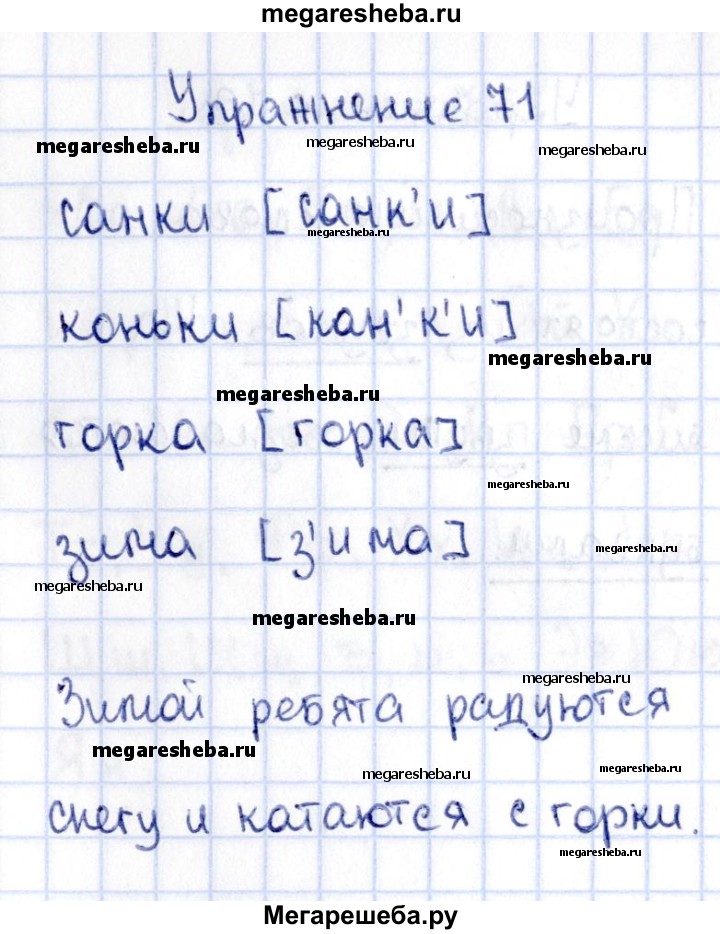 megaresheba.ru
Упражнение 71
megaresheba.ru
megaresheba.ru
megaresheba.ru
санки [санк'и]
megaresheba.ru
коньки [кан'к'и]
megaresheba.ru
megaresheba.ru
горка [горка]
megaresheba.ru
зима [з'има]
megaresheba.ru
megaresheba.ru
megaresheba.ru
Зимой ребята радуются
megaresheba.ru
megaresheba.ru
megaresheba.ru
megaresheba.ru
снегу и катаются с горки.
megaresheba.ru
Мегарешеба.ру